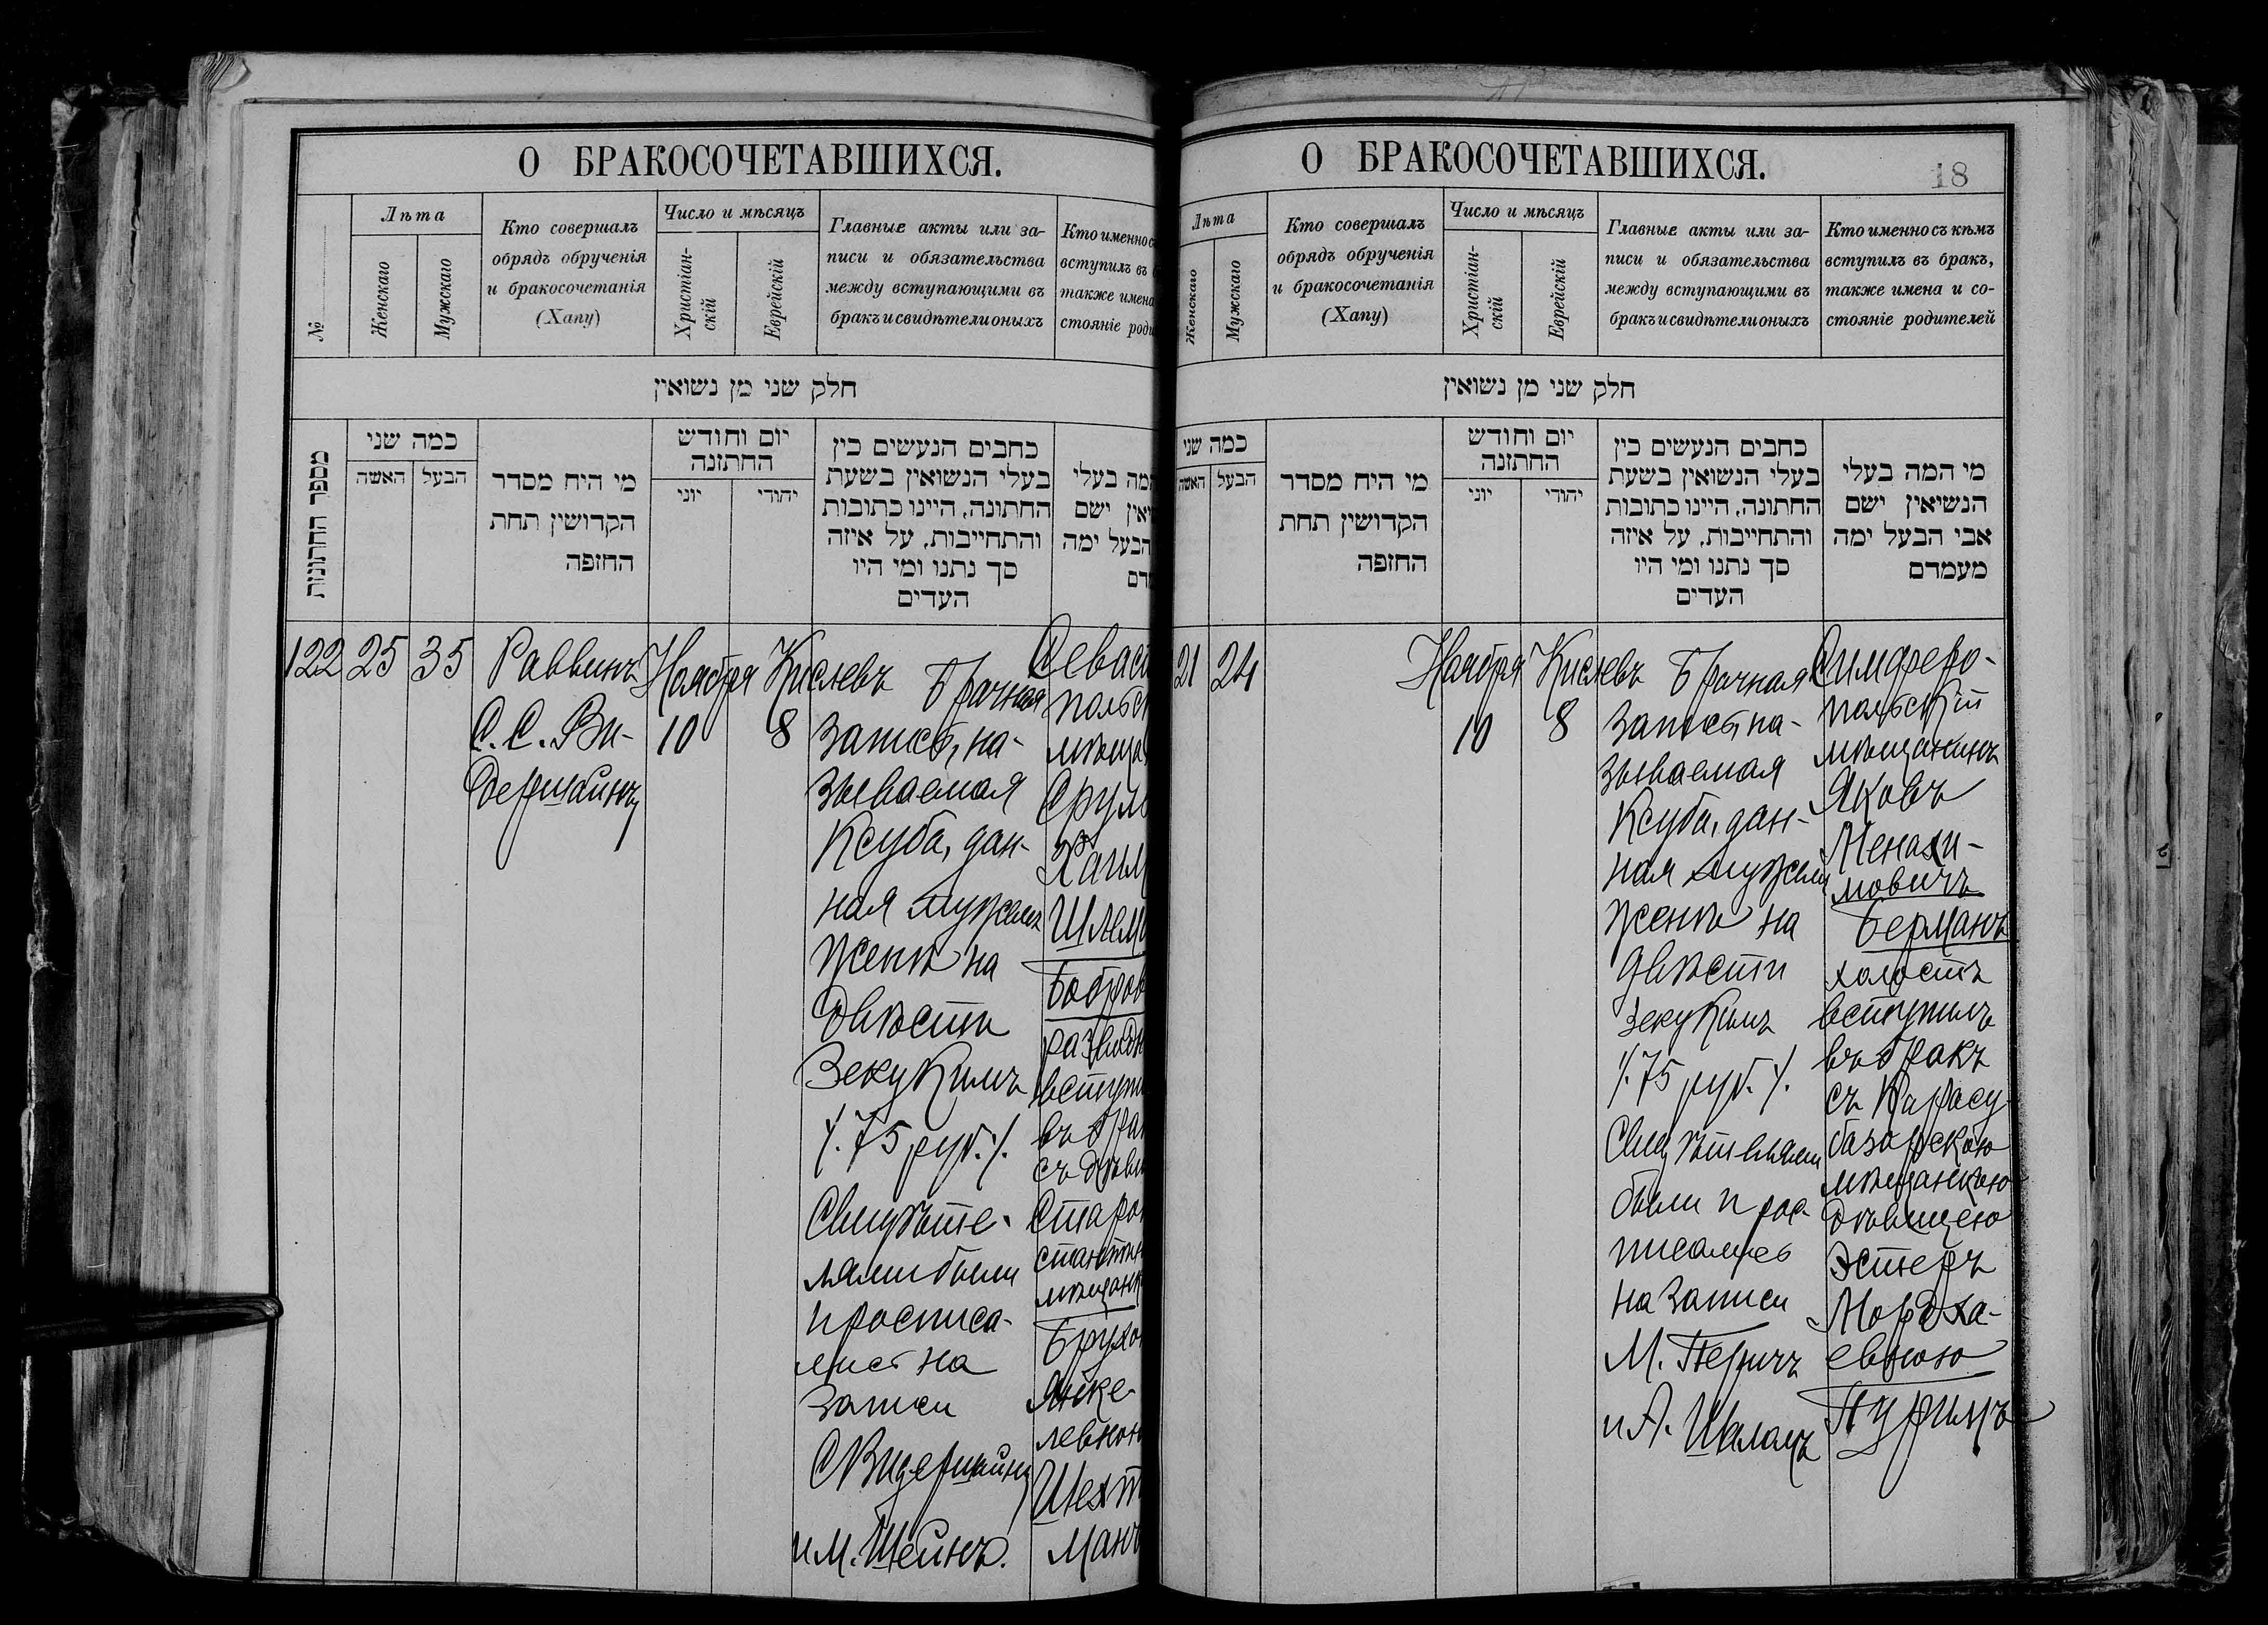 О БРАКОСОЧЕТАВШИХСЯ.
№
Лѣта
Женскаго
Мужскаго
Кто совершалъ
обрядъ обрученія
и бракосочетанія
(Хапу)
Число и мѣсяцъ
Христіан-
скій
Еврейскій
Главные акты или за-
писи и обязательства
между вступающими въ
бракъ и свидѣтели оныхъ
Кто именно с
вступилъ въ б
также имена
стояніе роди
חלק שני מן נשואין
מספר החתונות
כמה שני
האשה
הבעל
מי היח מסדר
הקדושין תחת
החזפה
יום וחודש
החתזנה
יוני
יהודי
כחבים הנעשים כין
בעלי הנשואין בשעת
החתונה, היינו כתובות
והתחייבות, על איזה
סך נתנו ומי היו
העדים
המה בעלי
יאין ישם
הבעל ימה
מדם
122
25
35
Раввинъ
С. С. Ви-
дершайнъ
Ноября
10
Кислевъ
8
Брачная
запись, на-
зываемая
Ксуба, дан-
ная мужемъ
женѣ на
двѣсти
зекукимъ
/. 75 руб. /.
Свидѣте-
лями были
и росписа-
лись на
записи
С Видершайнъ
и М. Шейнъ.
Севаст
польск
мѣща
Сруль
Хаим
Шлемо
Бобров
разведен
вступи
въ бра
съ дѣви
Старок
стантин
мѣщанк
Брухо
Янке-
левною
Шехт
манъ
О БРАКОСОЧЕТАВШИХСЯ.
18
Лѣта
Женскаго
Мужскаго
Кто совершалъ
обрядъ обрученія
и бракосочетанія
(Хапу)
Число и мѣсяцъ
Христіан-
скій
Еврейскій
Главные акты или за-
писи и обязательства
между вступающими въ
бракъ и свидѣтели оныхъ
Кто именно съ кѣмъ
вступилъ въ бракъ,
также имена и со-
стояніе родителей
חלק שני מן נשואין
כמה שני
האשה
הבעל
מי היח מסדר
הקדושין תחת
החזפה
יום וחודש
החתזנה
יוני
יהודי
כחבים הנעשים כין
בעלי הנשואין בשעת
החתונה, היינו כתובות
והתחייבות, על איזה
סך נתנו ומי היו
העדים
מי המה בעלי
הנשיאין ישם
אבי הבעל ימה
מעמדם
21
24
Ноября
10
Кислевъ
8
Брачная
запись, на-
зываемая
Ксуба, дан-
ная мужемъ
женѣ на
двѣсти
зекукимъ
/. 75 руб. /.
Свидѣтелями
были и рос-
писались
на записи
М. Перичъ
и А. Шаламъ
Симферо-
польскій
мѣщанинъ
Яковъ
Менахи-
мовичъ
Берманъ
холостъ
вступилъ
въ бракъ
съ Карасу-
базарскою
мѣщанкою
дѣвицею
Эстеръ
Мордха-
евною
Пуримъ